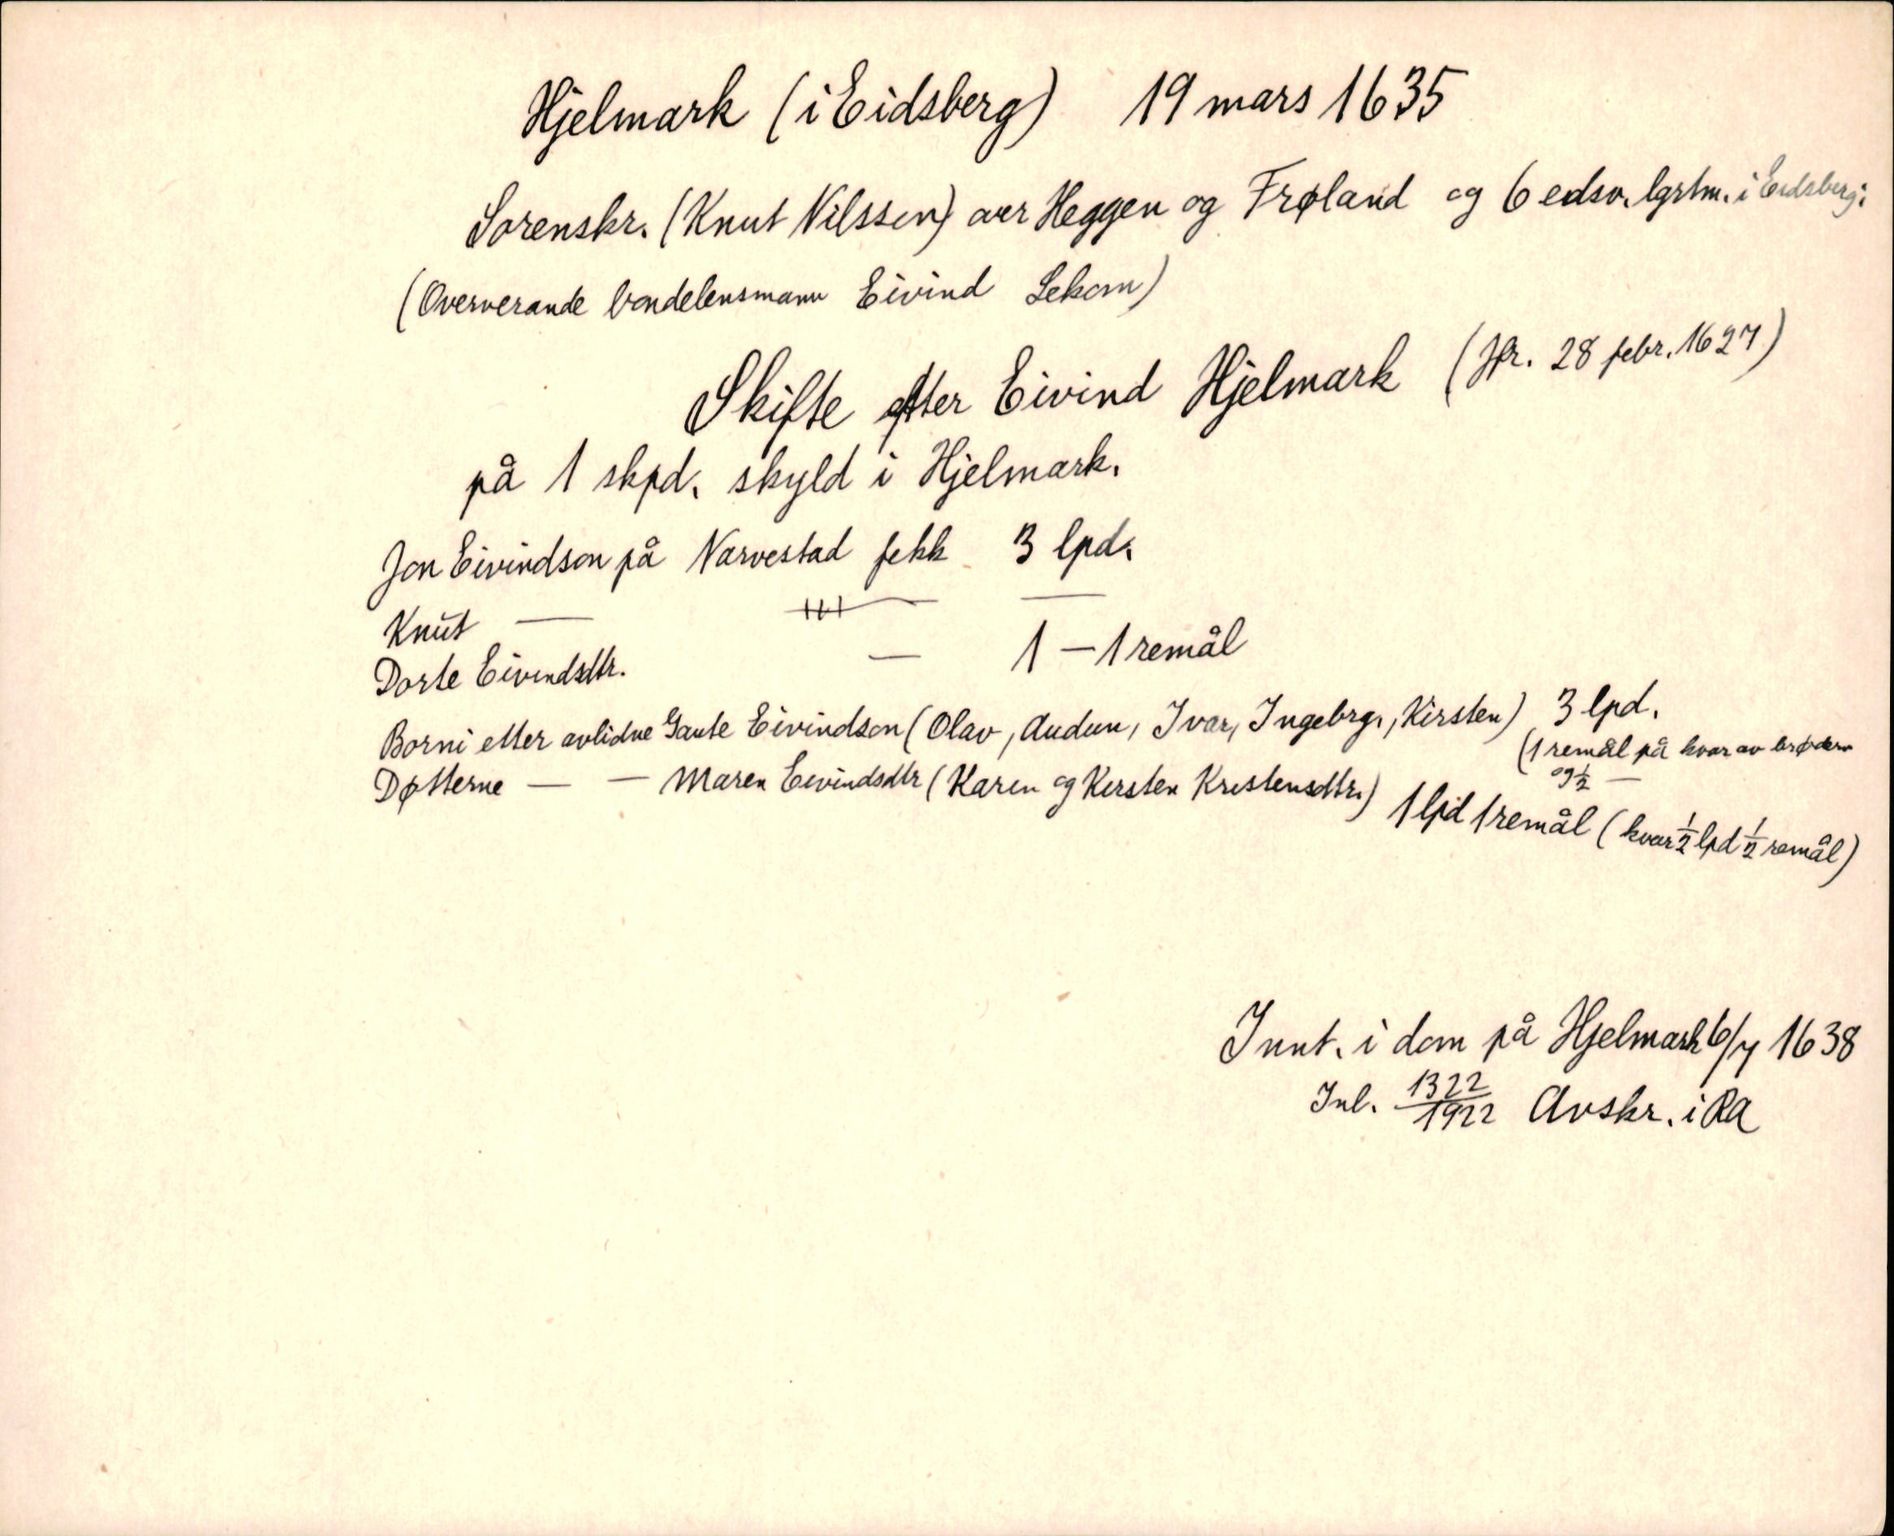 Hjelmark (i Eidsberg) 19 mars 1635
Sorenskr. (Knut Nilssen) over Heggen og Frøland og 6 edsv. lgrtm. i Eidsberg:
(Oververande bondelensmann Eivind Lekom)
Skifte etter Eivind Hjelmark (Jfr. 28 febr. 1627)
på 1 skpd. skyld i Hjelmark.
Jon Eivindson på Narvestad fekk 3 lpd.
Knut — — —
Dorte Eivindsdtr. — 1 — 1 remål
Borni etter avlidne Gaute Eivindson (Olav, Audun, Ivar, Ingebrg., Kirsten) 3 lpd.
(1 remål på kvar av brødern
og ½ —
Døtterne — — Maren Eivindsdtr (Karen og Kirsten Kristensdtr.) 1 lpd 1 remål (kvar ½ lpd ½ remål)
Innt. i dom på Hjelmark 6/7 1638
Inl. 1322/1922 Avskr. i RA